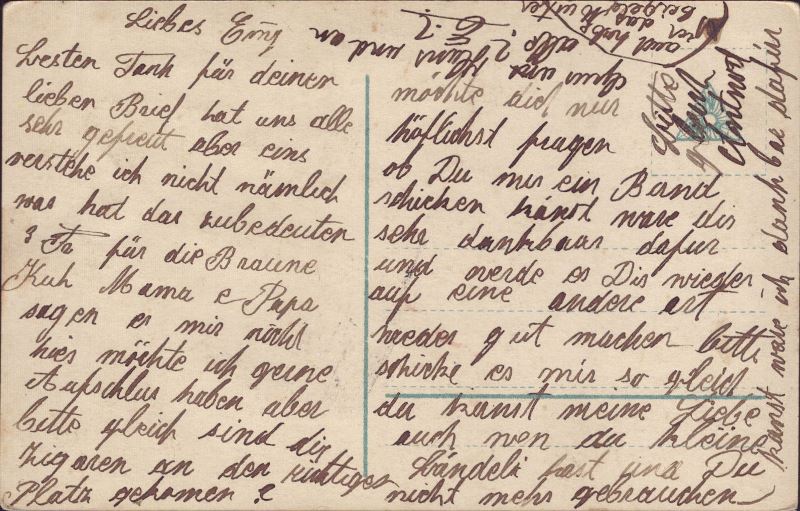 Liebes Emy
Besten Tank für deinen
lieben Brief hat uns alle
sehr gefreut aber eins
verstehe ich nicht nämlich
was hat das zubedeuten
3 Fr für die Braune
Kuh Mama e Papa
sagen es mir nicht
hies möchte ich gerne
Aufschlus haben aber
bitte gleich sind die
Zigaren an den richtigen
Platz gekomen ?
möchte dich nur
höflichst fragen
ob Du mir ein Band
schicken kanst ware dir
sehr dankbaar dafur
und werde es Dir wieder
auf eine andere art
wieder gut machen bitte
schicke es mir so gleich
du kanst meine Liebe
auch wen du kleine
Bändeli hast und Du
nicht mehr gebrauchen
kanst ware ich dankbar dafür
Bitte
gleich
Antwort
und an
alle
auch habe
das